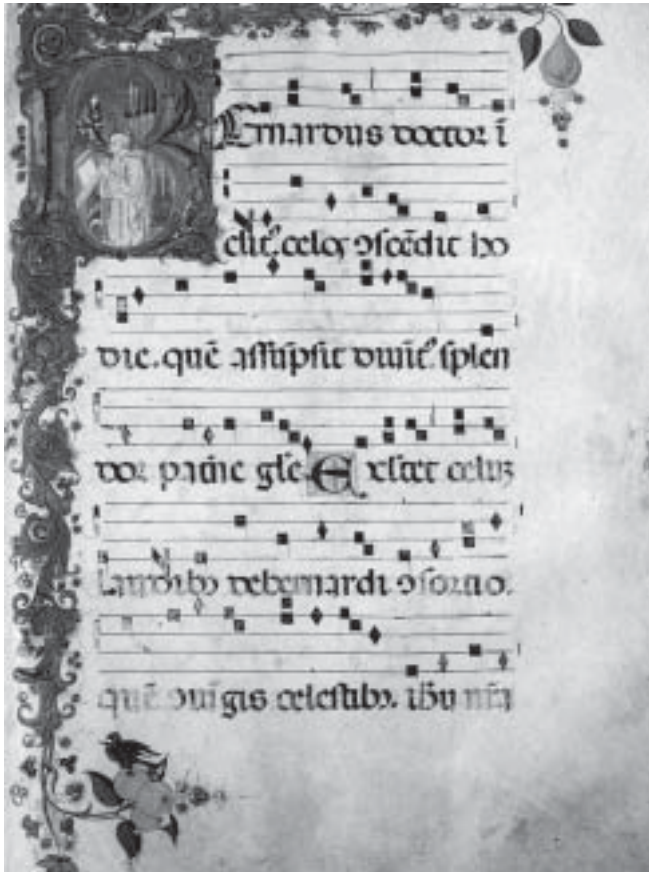 BErnardus doctor ī
clit᷒. celos ꝯscēdit ho
die. quē assūpsit diuīt᷒. splen
dor patrie gl̄e. Exl̄tet celū
laudibꝫ de bernardi ꝯsortio.
quē ꝯiūgis celestibꝫ. ih̄u